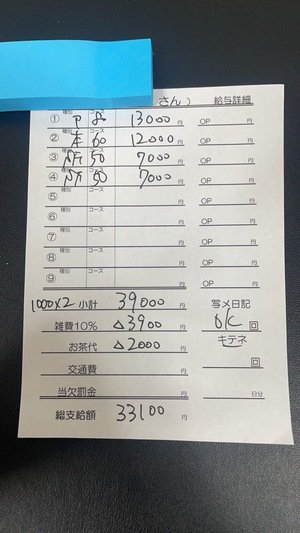 さん) 給与詳細
種別 コース
① P 80 13000円 OP 円
種別 コース
② 本 60 12000円 OP 円
種別 コース
③ 50 7000円 OP 円
種別 コース
④ 50 7000円 OP 円
種別 コース
⑤ 円 OP 円
種別 コース
⑥ 円 OP 円
種別 コース
⑦ 円 OP 円
種別 コース
⑧ 円 OP 円
種別 コース
⑨ 円 OP 円
1000×2 小計 39000円 写メ日記
雑費10% △3900円 OK 回
お茶代 △2000円 キテネ
交通費 円 回
当欠罰金 円 日分
総支給額 33100円